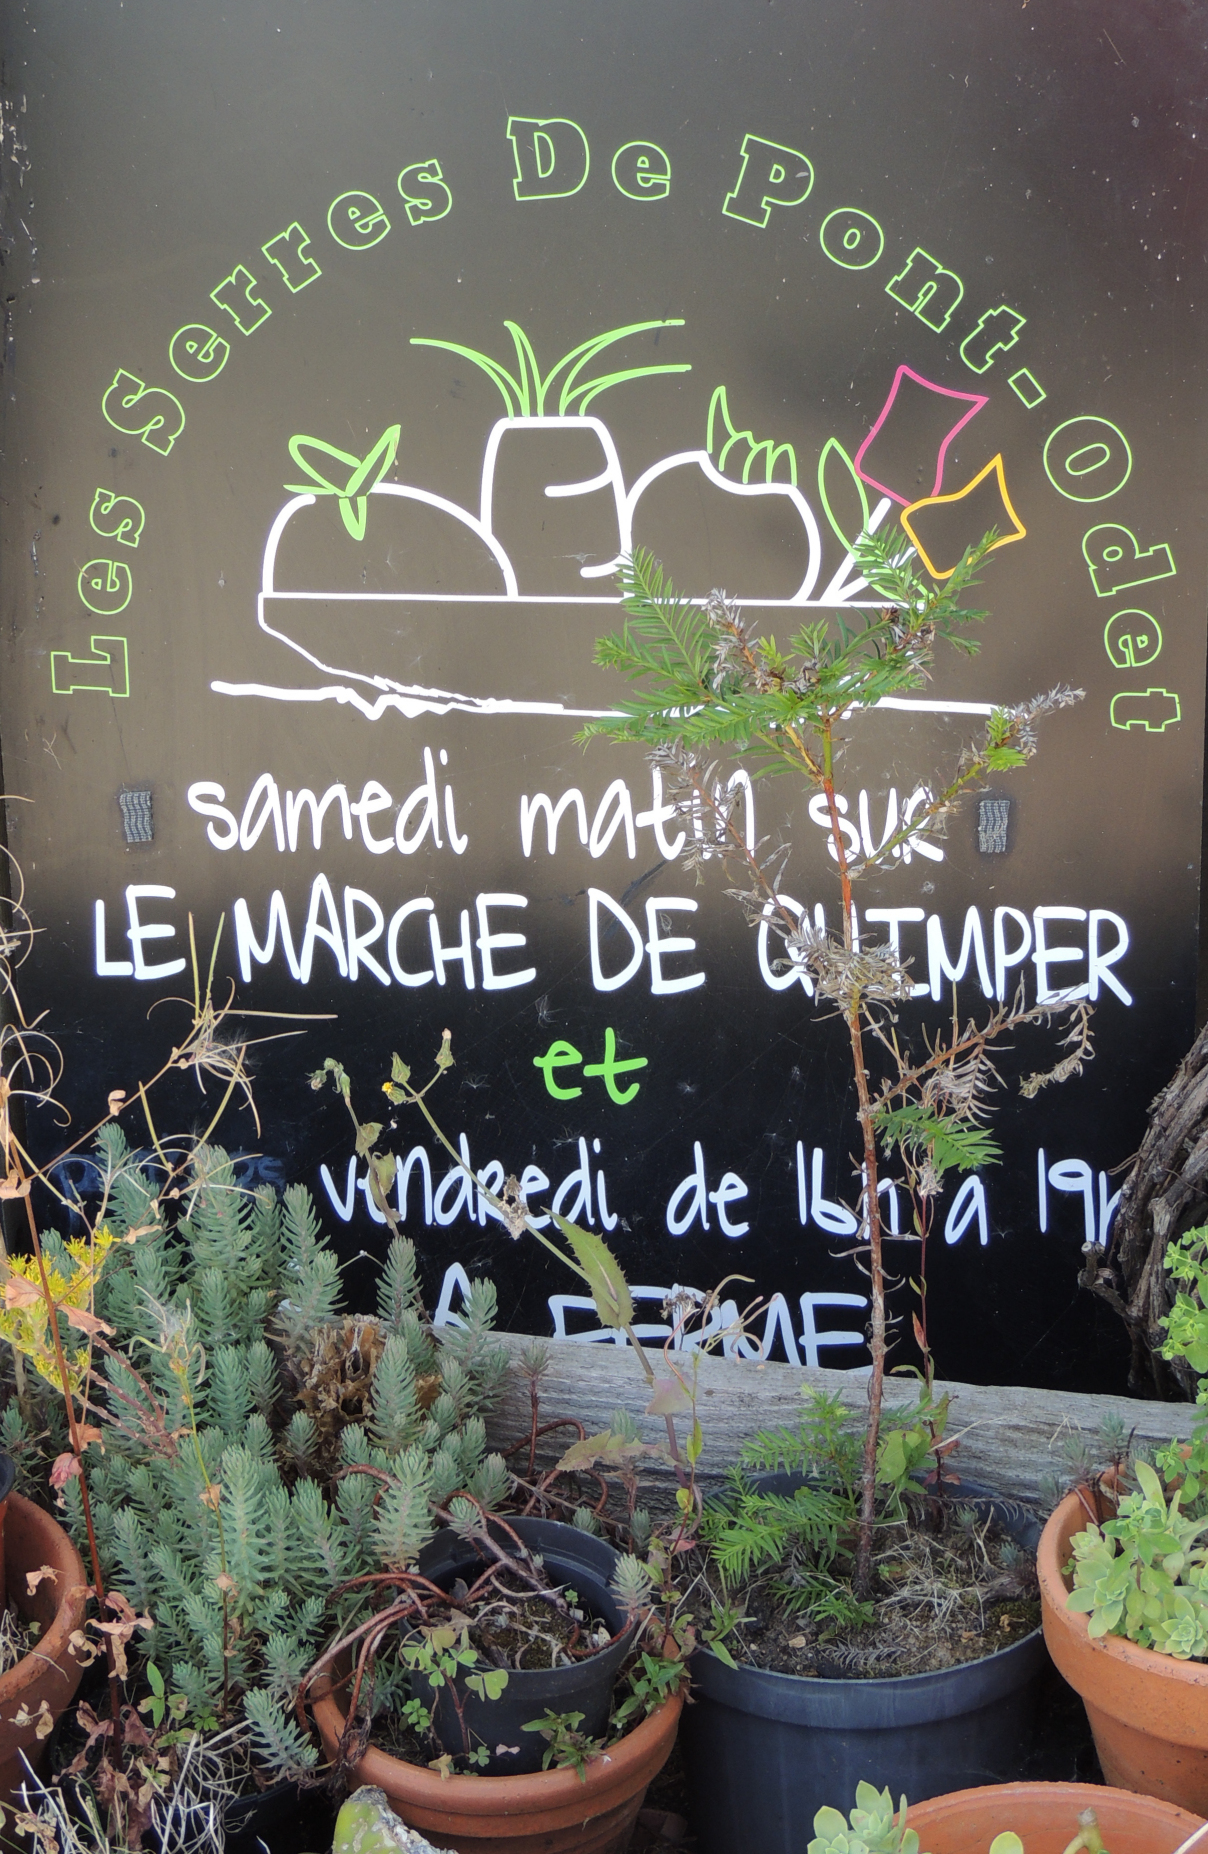 Les Serres De Pont-Odet
samedi matin sur
LE MARCHE DE QUIMPER
et
vendredi de 16h a 19h
A FERME